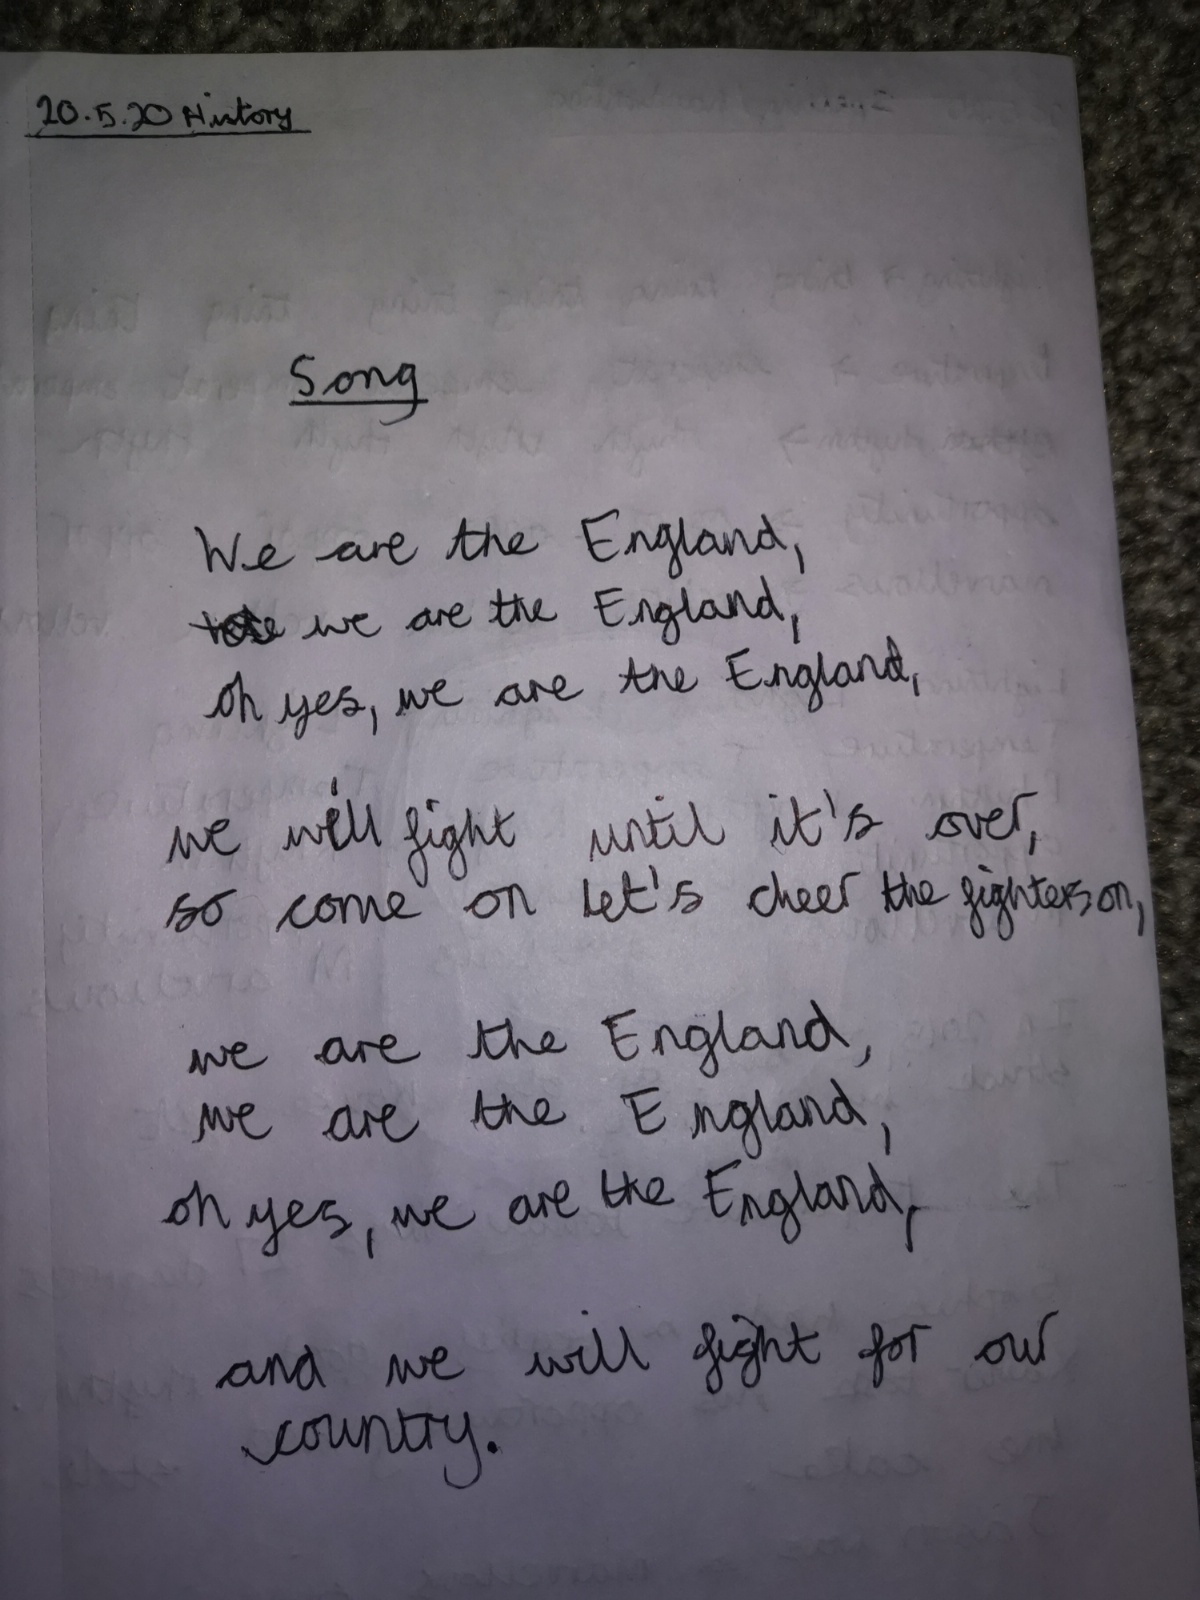 20.5.20 History
Song
We are the England,
we are the England,
oh yes, we are the England,
we will fight until it's over,
so come on let's cheer the fighters on,
we are the England,
we are the England,
oh yes, we are the England,
and we will fight for our
country.